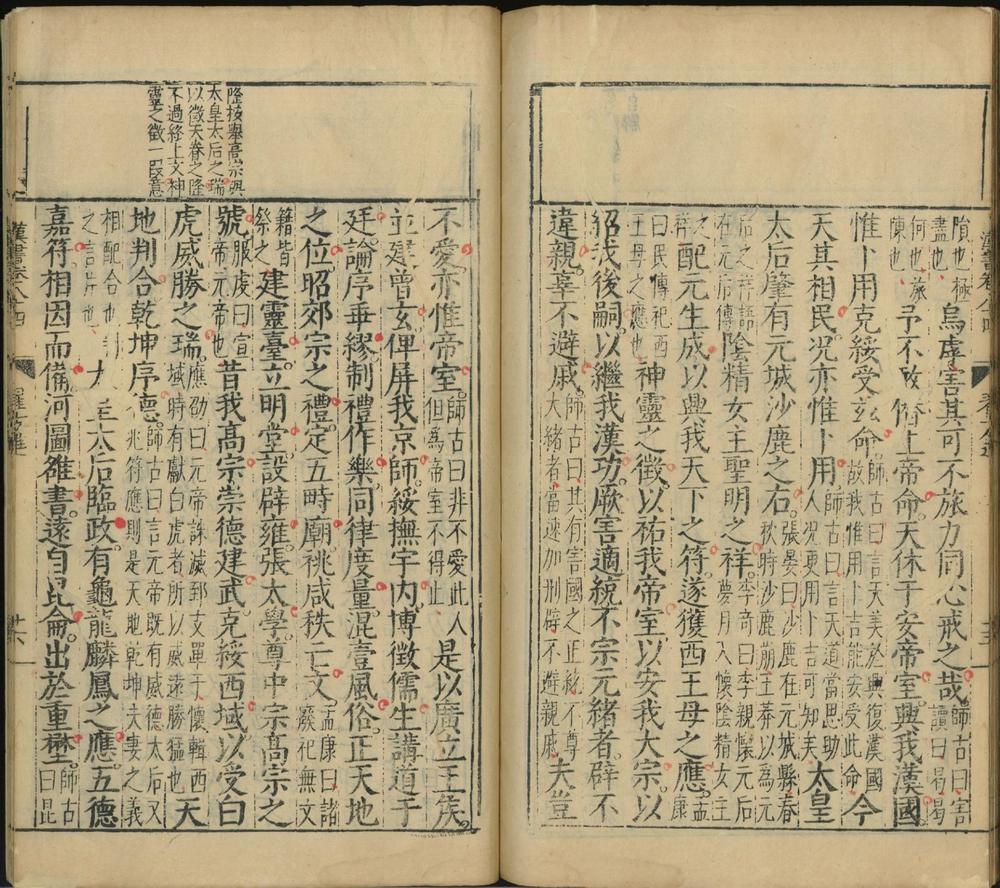 隕也極盡也烏虖害其可不旅力同心戒之哉師古曰害讀曰曷曷
何也旅陳也予不敢僭上帝命天休于安帝室興我漢國
惟卜用克綏受茲命師古曰言天美於興復漢國故我惟用卜吉能安受此命今
天其相民況亦惟卜用師古曰言天道當思助人況更用卜吉可知矣太皇
太后肇有元城沙鹿之右張晏曰沙鹿在元城縣春秋時沙鹿崩王莽以為元
后之祥語在元后傳陰精女主聖明之祥李奇曰李親懷元后夢月入懷陰精女主
之祥配元生成以興我天下之符遂獲西王母之應孟康
曰民傳祀西王母之應也神靈之徵以祐我帝室以安我大宗以
紹我後嗣以繼我漢功厥害適統不宗元緒者辟不
違親辜不避戚師古曰其有害國之正統不尊大緒者當速加刑辟不避親戚夫豈
隆按舉高宗興
太皇太后之瑞
以徵天眷之隆
不過終上文神
靈之徵一段意
不愛亦惟帝室師古曰非不愛此人但為帝室不得止是以廣立王侯
並建曾玄俾屏我京師綏撫宇內博徵儒生講道于
廷論序乖繆制禮作樂同律度量混壹風俗正天地
之位昭郊宗之禮定五畤廟祧咸秩亡文孟康曰諸廢祀無文
籍皆祭之建靈臺立明堂設辟雍張太學尊中宗高宗之
號服虔曰宣帝元帝也昔我高宗崇德建武克綏西域以受白
虎威勝之瑞應劭曰元帝誅滅郅支單于懷輯西域時有獻白虎者所以威遠勝猛也天
地判合乾坤序德師古曰言元帝既有威德太后又兆符應則是天地乾坤夫妻之義
相配合也判之言片也太后臨政有龜龍麟鳳之應五德
嘉符相因而備河圖雒書遠自昆侖出於重壄師古曰昆
漢書卷八十四